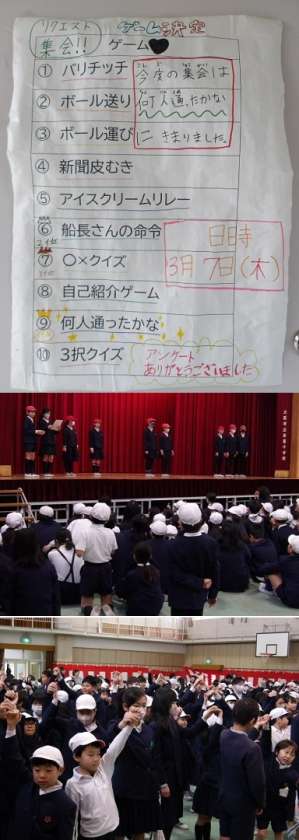 リクエスト
ゲーム決定
集会!! ゲーム
① バリチッチ
今度の集会は
② ボール送り
何人通ったかな
③ ボール運び
にきまりました。
④ 新聞皮むき
⑤ アイスクリームリレー
⑥ 船長さんの命令
日時
⑦ 〇×クイズ
3月7日(木)
⑧ 自己紹介ゲーム
⑨ 何人通ったかな
⑩ 3択クイズ
アンケート
ありがとうございました